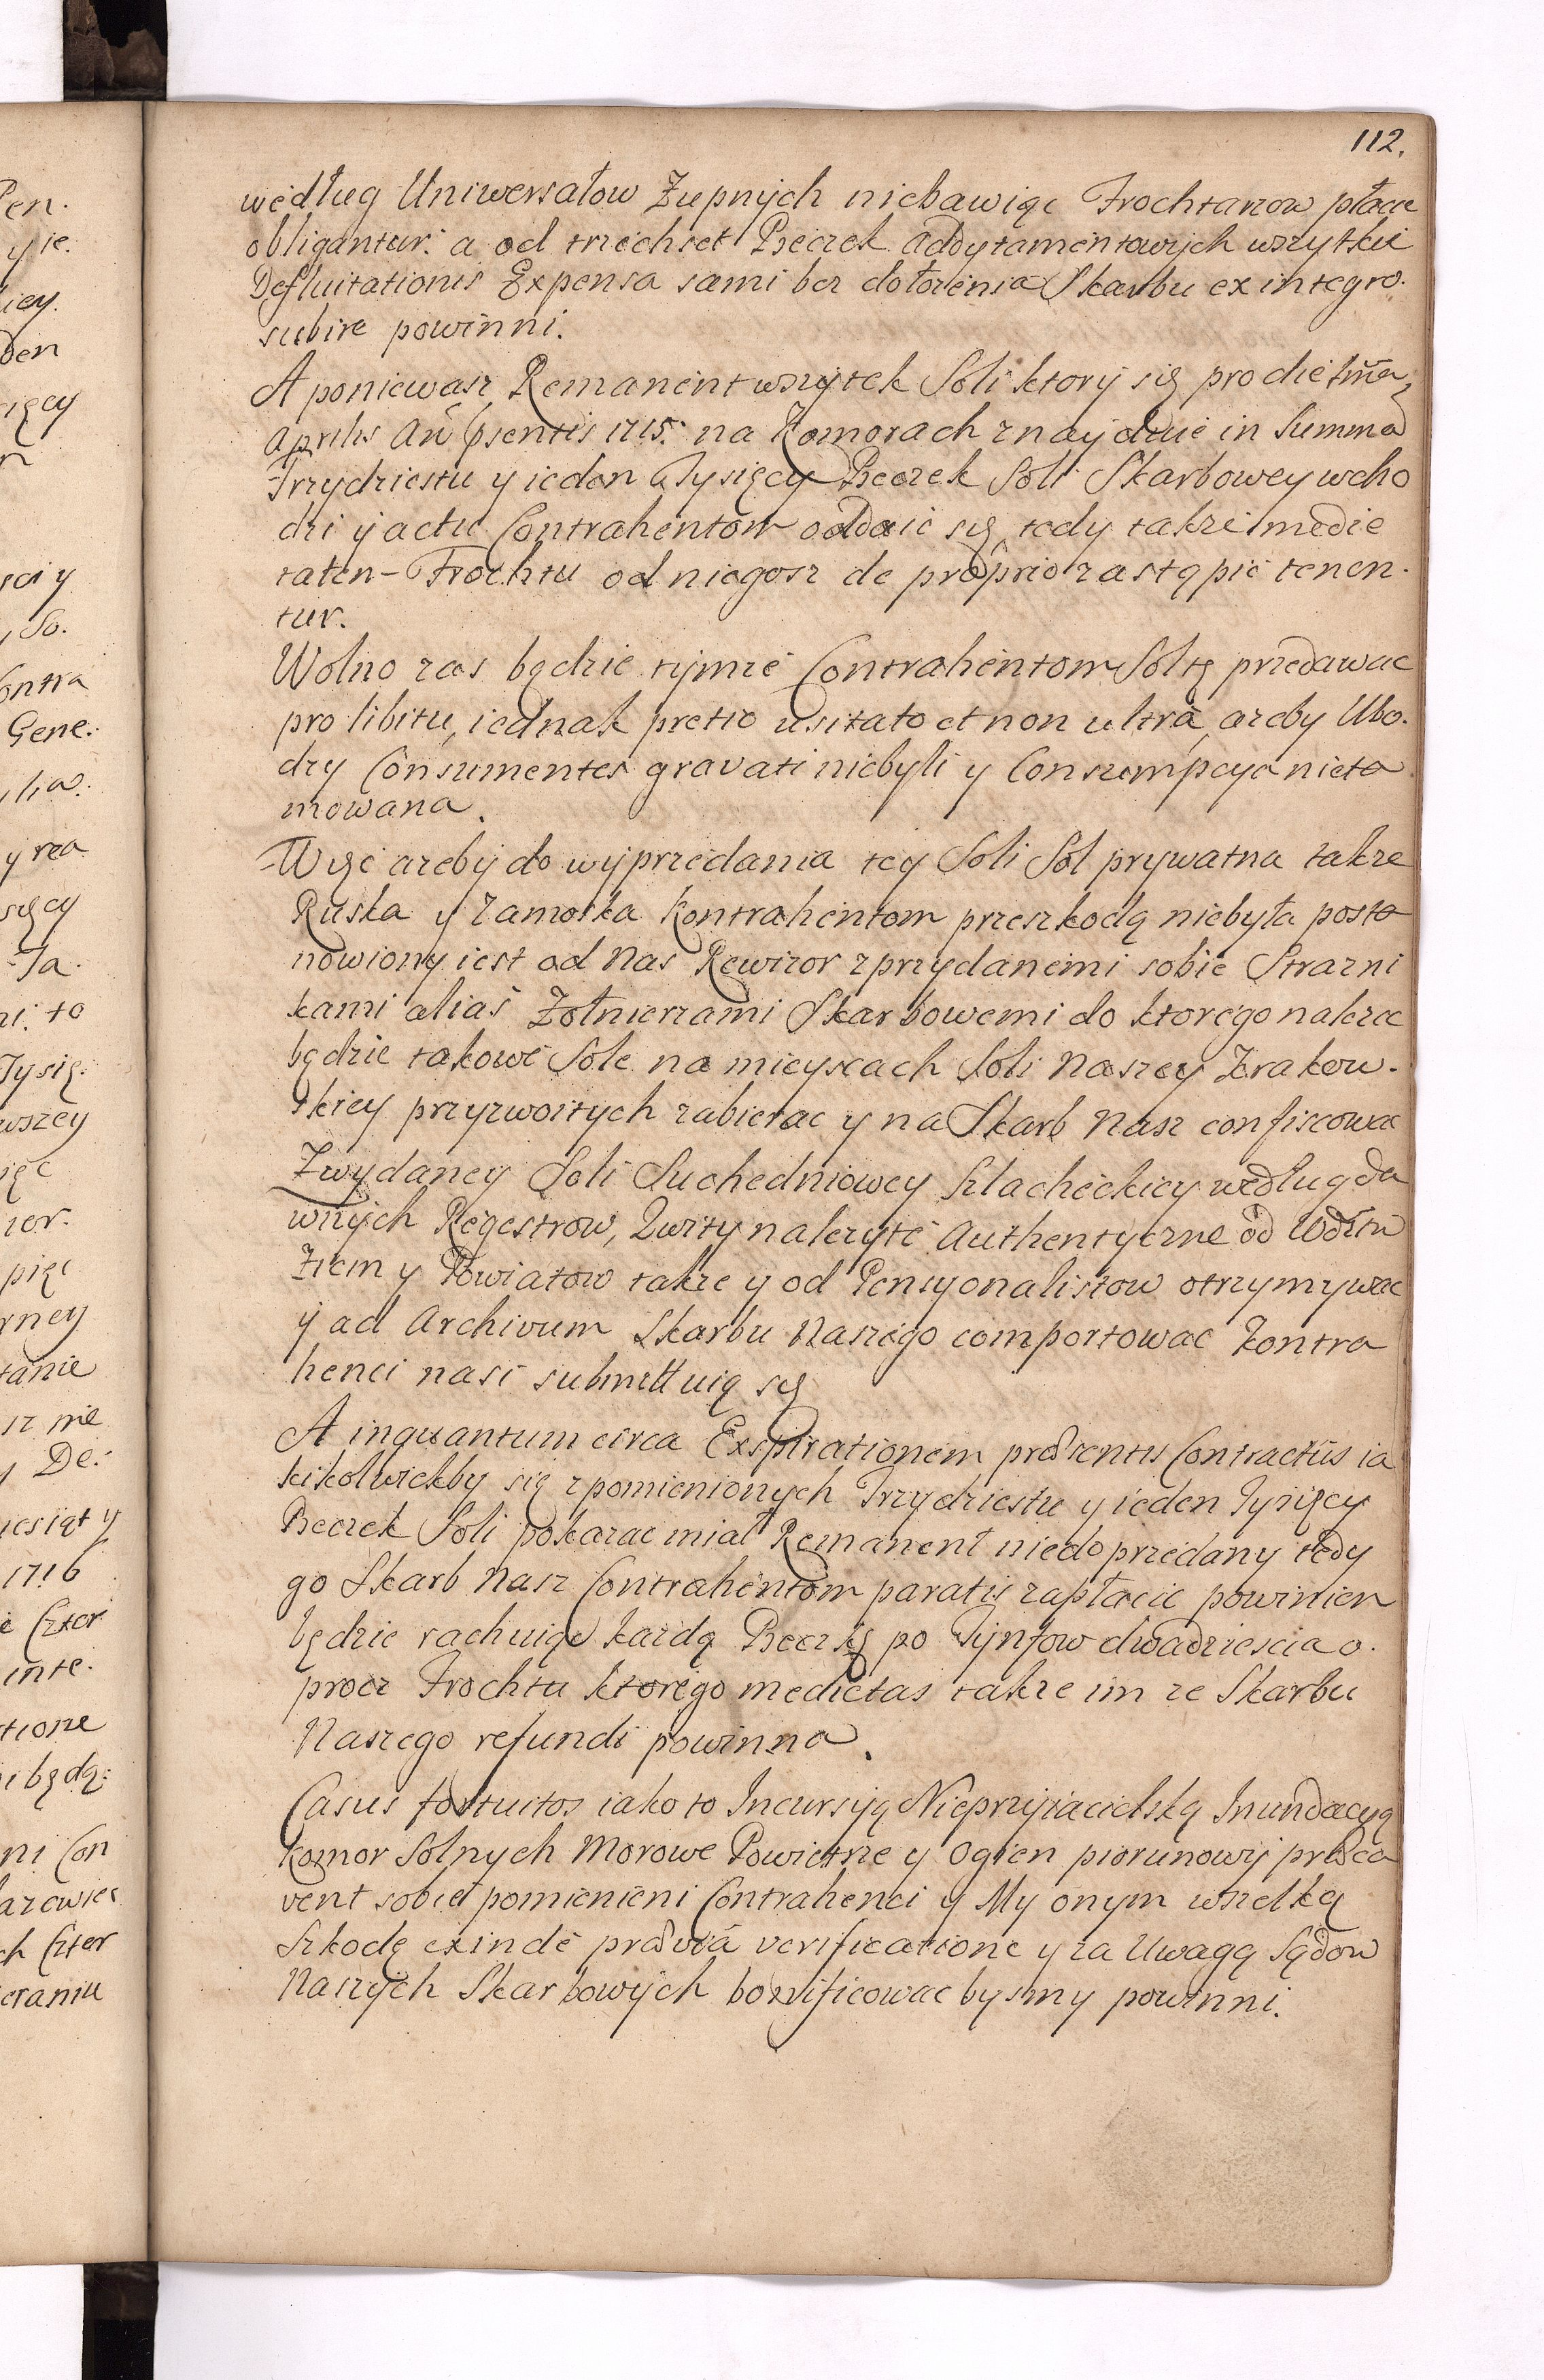 112.
według Uniwersałow Zupnych niebawiąc Frochtarzow płacic
obligantur: a od trzechset Beczek addytamentowych wszytkie
Defluitationis Expensa sami bez dołozenia Skarbu ex integro.
subire powinni.
A poniewasz Remanent wszytek Soli ktory się pro die
Aprilis Añ psentis 1715. na Komorach znayduie in Summa
Trzydziestu y ieden Tysięcy Beczek Soli Skarbowey wcho
dzi y actu Contrahentom oddaie się, tedy takze medie
taten- Frochtu od niegosz de proprio zastąpic tenen-
tur.
Wolno zas będzie tymze Contrahentom Sol tę przedawac
pro libitu, iednak pretio usitato et non ultra, azeby Ubo-
dzy Consumentes gravati niebyli y Consumpcya nieta
mowana.
Więc azeby do wyprzedania tey Soli Sol prywatna takze
Ruska y Zamoska Kontrahentom przeszkodą niebyła posta
nowiony iest od Nas Rewizor z przydanemi sobie Strazni
kami alias Zołnierzami Skarbowemi do ktorego nalezec
będzie takowe Sole na mieyscach Soli Naszey Krakow-
skiey przyzwoitych zabierac y na Skarb Nasz confiscowac
Zwydaney Soli Suchedniowey Szlacheckiey według da
wnych Regestrow, Qwity nalezyte Authentyczne od Wodztw
Ziem y Powiatow takze y od Pensyonalistow otrzymywac
y ad Archivum Skarbu Naszego comportowac Kontra
henci nasi submittuią się
A inquantum circa Exspirationem præsentis Contractûs ia
kikolwiekby się z pomienionych Trzydziestu y ieden Tysięcy
Beczek Soli pokazac miał Remanent niedoprzedany tedy
go Skarb Nasz Contrahentom paratis zapłacic powinien
będzie rachuiąc kazdą Beczkę po Tynfow dwadziescia o-
procz Frochtu ktorego medietas takze im ze Skarbu
Naszego refundi powinna.
Casus fortuitos iako to Incursyą Nieprzyiacielską Inundacyą
Komor Solnych Morowe Powietrze y Ogien piorunowy præca
vent sobie pomienieni Contrahenci y My onym wszelką
Szkodę exinde præviâ verificatione y za Uwagą Sądow
Naszych Skarbowych bonificowac bysmy powinni.